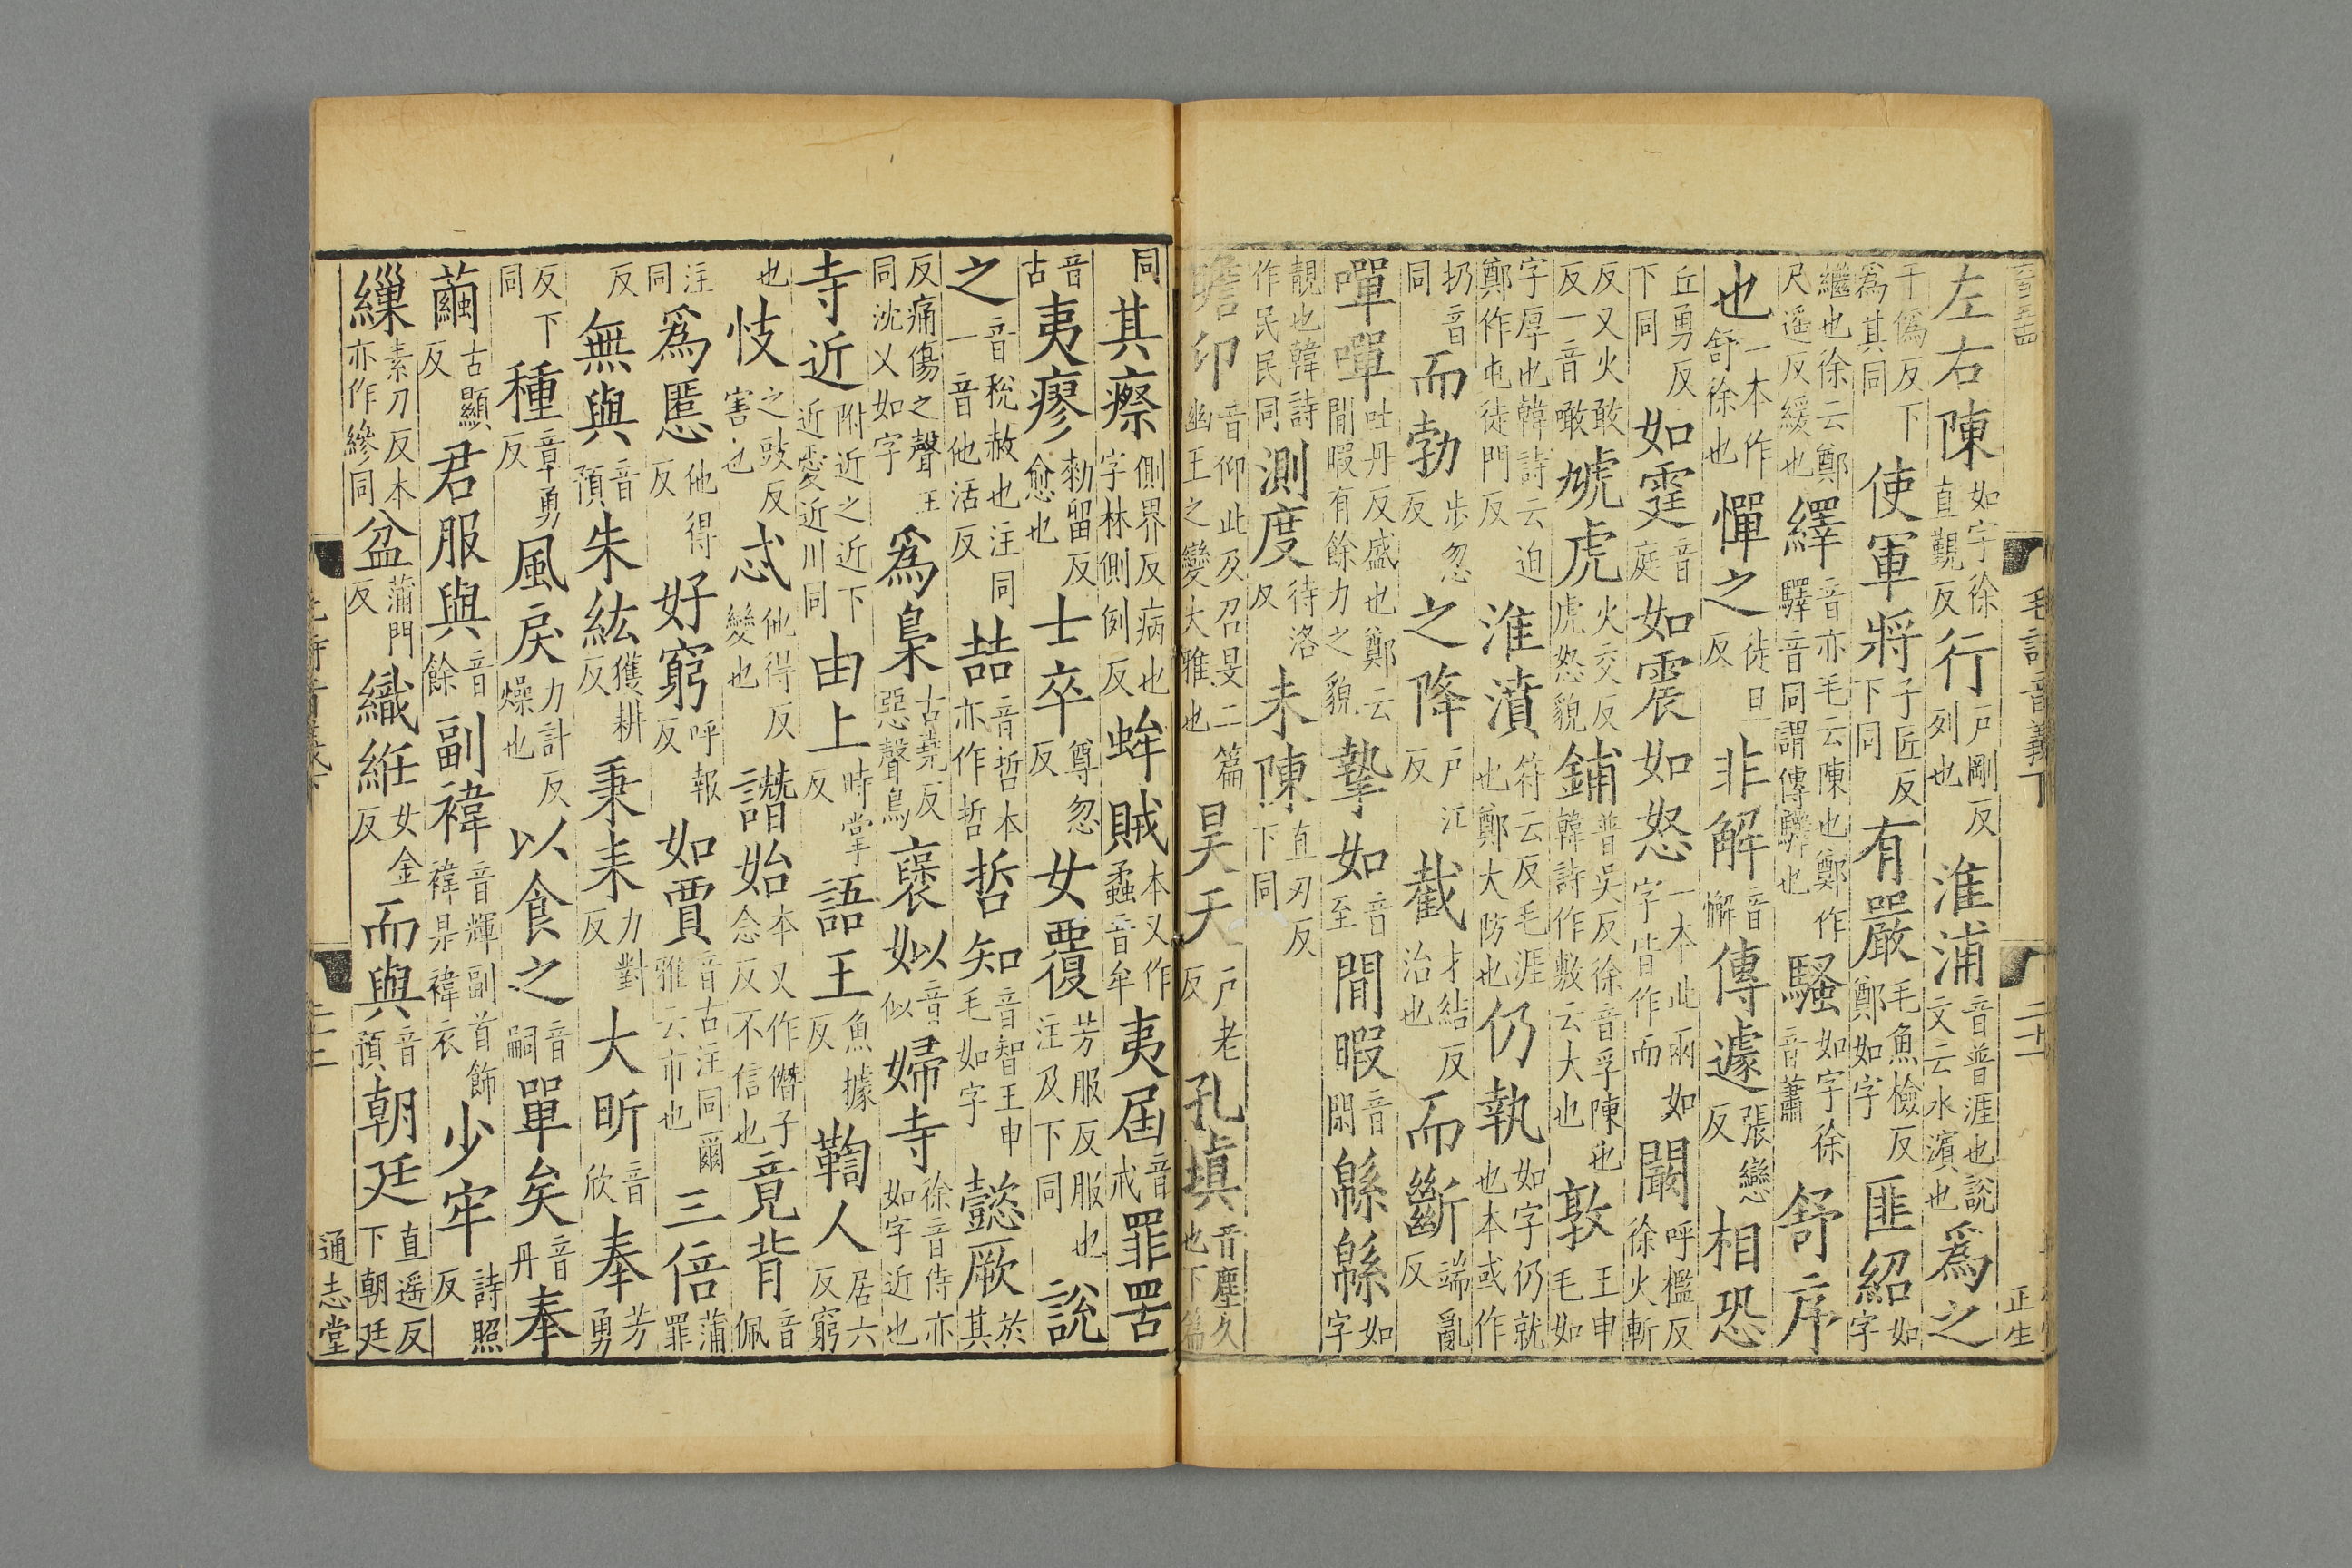 毛詩音義下 二十一
左右陳如字徐直覲反行戶剛反列也淮浦音普涯也說文云水濱也爲之
于僞反下爲其同使軍將子匠反下同有嚴毛魚檢反鄭如字匪紹如字
繼也徐云鄭尺遥反緩也繹音亦毛云陳也鄭作驛音同謂傳驛也騷如字徐音蕭舒序
也一本作舒徐也憚之徒旦反非解音懈傳遽張戀反相恐
丘勇反下同如霆音庭如震如怒一本此兩如字皆作而闞呼檻反徐火斬
反又火敢反一音噉虓虎火交反虎怒貌鋪普吳反徐音孚陳也韓詩作敷云大也敦王申毛如
字厚也韓詩云迫鄭作屯徒門反淮濆符云反毛涯也鄭大防也仍執如字仍就也本或作
扔音同而勃步忽反之降戶江反截才結反治也而斷端亂反
嘽嘽吐丹反盛也鄭云閒暇有餘力之貌摯如音至閒暇音閑緜緜如字
靚也韓詩作民民同測度待洛反未陳直刃反下同
瞻卬音仰此及召旻二篇幽王之變大雅也昊天戶老反孔填音塵久也下篇
同其瘵側界反病也字林側例反蛑賊本又作蟊音牟夷屆音戒罪罟
音古夷瘳勑留反愈也士卒尊忽反女覆芳服反服也注及下同說
之音稅赦也注同一音他活反喆音哲本亦作哲哲知音智王申毛如字懿厥於其
反痛傷之聲王同沈又如字爲梟古堯反惡聲鳥襃姒音似婦寺徐音侍亦如字近也
寺近附近之近下近愛近川同由上時掌反語王魚據反鞫人居六反窮
也忮之豉反害也忒他得反變也譖始本又作僭子念反不信也竟背音佩
注同爲慝他得反好窮呼報反如賈音古注同爾雅云市也三倍蒲罪
反無與音預朱紘獲耕反秉耒力對反大昕音欣奉芳勇
反下同種章勇反風戾力計反燥也以食之音嗣單矣音丹奉
繭古顯反君服與音餘副褘音輝副首飾褘是褘衣少牢詩照反
繅素刀反本亦作縿同盆蒲門反織紝女金反而與音預朝廷直遥反下朝廷
二十二
通志堂